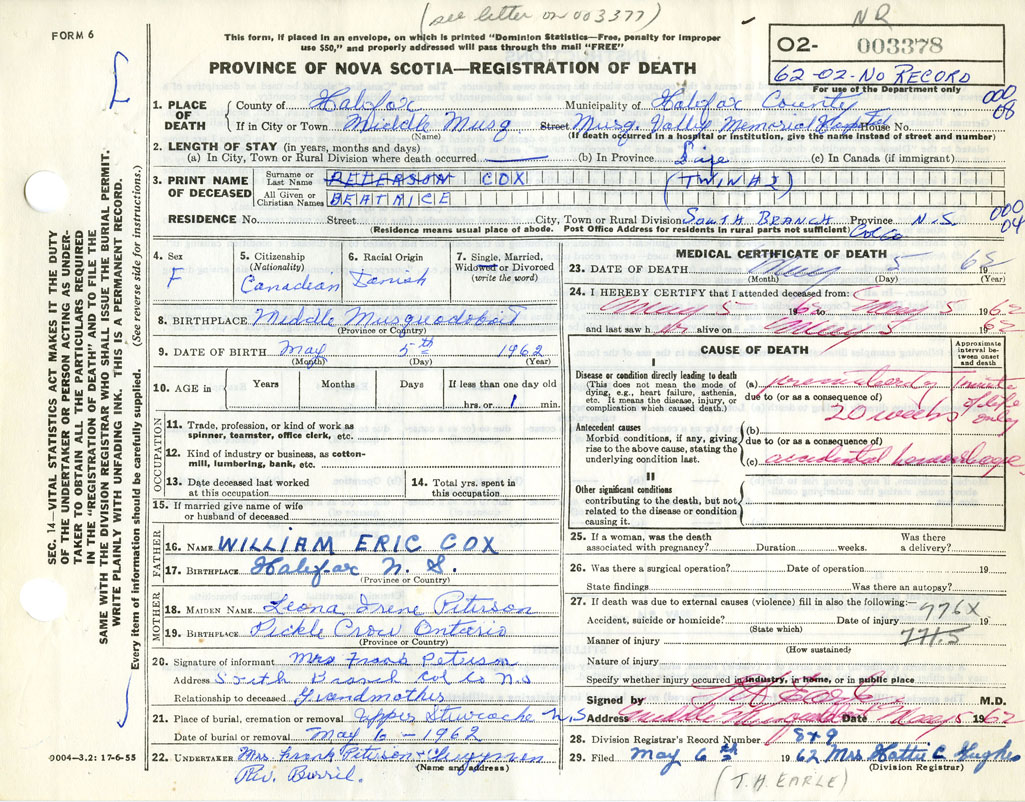 (see letter on 003377)
NR
FORM 6
This form, if placed in an envelope, on which is printed "Dominion Statistics—Free, penalty for improper
use $50," and properly addressed will pass through the mail "FREE"
O2- 003378
62-02-NO RECORD
For use of the Department only
PROVINCE OF NOVA SCOTIA—REGISTRATION OF DEATH
000
08
1. PLACE OF DEATH
County of Halifax Municipality of Halifax County
If in City or Town Middle Musq Street Musq. Vally Memorial Hospital House No.
(Name) (If death occurred in a hospital or institution, give the name instead of street and number)
2. LENGTH OF STAY (in years, months and days)
(a) In City, Town or Rural Division where death occurred (b) In Province Life (c) In Canada (if immigrant)
3. PRINT NAME OF DECEASED
Surname or Last Name PETERSON COX (TWIN #2)
All Given or Christian Names BEATRICE
RESIDENCE No. Street City, Town or Rural Division SOUTH BRANCH Province N.S.
(Residence means usual place of abode. Post Office Address for residents in rural parts not sufficient) Col Co
000
04
4. Sex
F
5. Citizenship
(Nationality)
Canadian
6. Racial Origin
Danish
7. Single, Married,
Widowed or Divorced
(write the word)
8. BIRTHPLACE Middle Musquodoboit
(Province or Country)
9. DATE OF BIRTH May 5th 1962
(Month) (Day) (Year)
10. AGE in Years Months Days If less than one day old
hrs. or 1 min.
OCCUPATION
11. Trade, profession, or kind of work as
spinner, teamster, office clerk, etc.
12. Kind of industry or business, as cotton-
mill, lumbering, bank, etc.
13. Date deceased last worked
at this occupation
14. Total yrs. spent in
this occupation
15. If married give name of wife
or husband of deceased
FATHER
16. NAME WILLIAM ERIC COX
17. BIRTHPLACE Halifax N. S.
(Province or Country)
MOTHER
18. MAIDEN NAME Leona Irene Peterson
19. BIRTHPLACE Pickle Crow Ontario
(Province or Country)
20. Signature of informant Mrs Frank Peterson
Address South Branch Col Co N.S
Relationship to deceased Grandmother
21. Place of burial, cremation or removal Upper Stewiacke N.S
Date of burial or removal May 6 - 1962
22. UNDERTAKER Mrs Frank Peterson +
(Name and address)
Rev. Burril.
0004—3,2: 17-6-55
MEDICAL CERTIFICATE OF DEATH
23. DATE OF DEATH May 5 1962
(Month) (Day) (Year)
24. I HEREBY CERTIFY that I attended deceased from:
May 5 1962 to May 5 1962
and last saw her alive on May 5 1962
CAUSE OF DEATH
Approximate
interval be-
tween onset
and death
I
Disease or condition directly leading to death
(This does not mean the mode of
dying, e.g., heart failure, asthenia,
etc. It means the disease, injury, or
complication which caused death.)
(a) prematurity 1 minute of life only
due to (or as a consequence of)
20 weeks
Antecedent causes
Morbid conditions, if any, giving
rise to the above cause, stating the
underlying condition last.
(b)
due to (or as a consequence of)
(c) accidental hemorrhage
II
Other significant conditions
contributing to the death, but not
related to the disease or condition
causing it.
25. If a woman, was the death Was there
associated with pregnancy? Duration weeks. a delivery?
26. Was there a surgical operation? Date of operation 19
State findings Was there an autopsy?
27. If death was due to external causes (violence) fill in also the following:- 776X
Accident, suicide or homicide? Date of injury 19
(State which) 771.5
Manner of injury
(How sustained)
Nature of injury
Specify whether injury occurred in industry, in home, or in public place
Signed by M.D.
Address Middle Musquodoboit Date May 5 1962
28. Division Registrar's Record Number 8+9
29. Filed May 6th 1962 Mrs Hattie C Hughes
(Division Registrar)
(T.H. EARLE)
SEC. 14—VITAL STATISTICS ACT MAKES IT THE DUTY
OF THE UNDERTAKER OR PERSON ACTING AS UNDER-
TAKER TO OBTAIN ALL THE PARTICULARS REQUIRED
IN THE "REGISTRATION OF DEATH" AND TO FILE THE
SAME WITH THE DIVISION REGISTRAR WHO SHALL ISSUE THE BURIAL PERMIT.
WRITE PLAINLY WITH UNFADING INK. THIS IS A PERMANENT RECORD.
Every item of information should be carefully supplied. (See reverse side for instructions.)